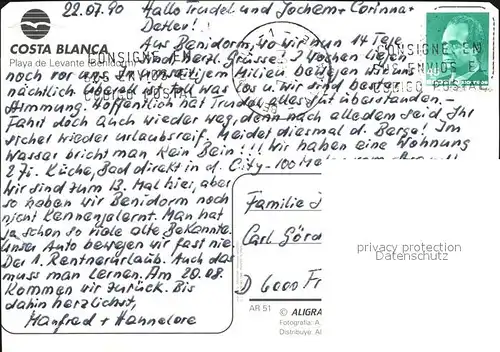 22.07.90 Hallo Trudel und Jochem + Corinna +
Detlev!
COSTA BLANCA
Playa de Levante Benidorm
Aus Benidorm, wo wir nun 14 Tage
herzl. Grüsse! 2 Wochen liegen
noch vor uns. In unserem Milieu bewegen wir uns
nächtlich überall ist toll was los u. wir sind bester
Stimmung. Hoffentlich hat Trudel alles gut überstanden. -
Fahrt doch auch wieder weg, denn nach alledem seid Ihr
sicher wieder urlaubsreif. Meidet diesmal d. Berge! Im
Wasser bricht man kein Bein!!! Wir haben eine Wohnung
2 Zi. Küche, Bad direkt in d. City - 100 Meter
Wir sind zum 13. Mal hier, aber
so haben wir Benidorm noch
nicht kennengelernt. Man hat
ja schon so viele alte Bekannte.
Unser Auto bewegen wir fast nie.
Der 1. Rentnerurlaub. Auch das
muss man lernen. Am 20.08.
kommen wir zurück. Bis
dahin herzlichst,
Manfred + Hannelore
CONSIGNE EN
LOS ENVIOS EL
CODIGO POSTAL
CONSIGNE EN
LOS ENVIOS EL
CODIGO POSTAL
Familie
Carl Görd
D 6000 Fr
privacy protection
Datenschutz
AR 51
© ALIGRA
Fotografía: A
Distribuye: Al